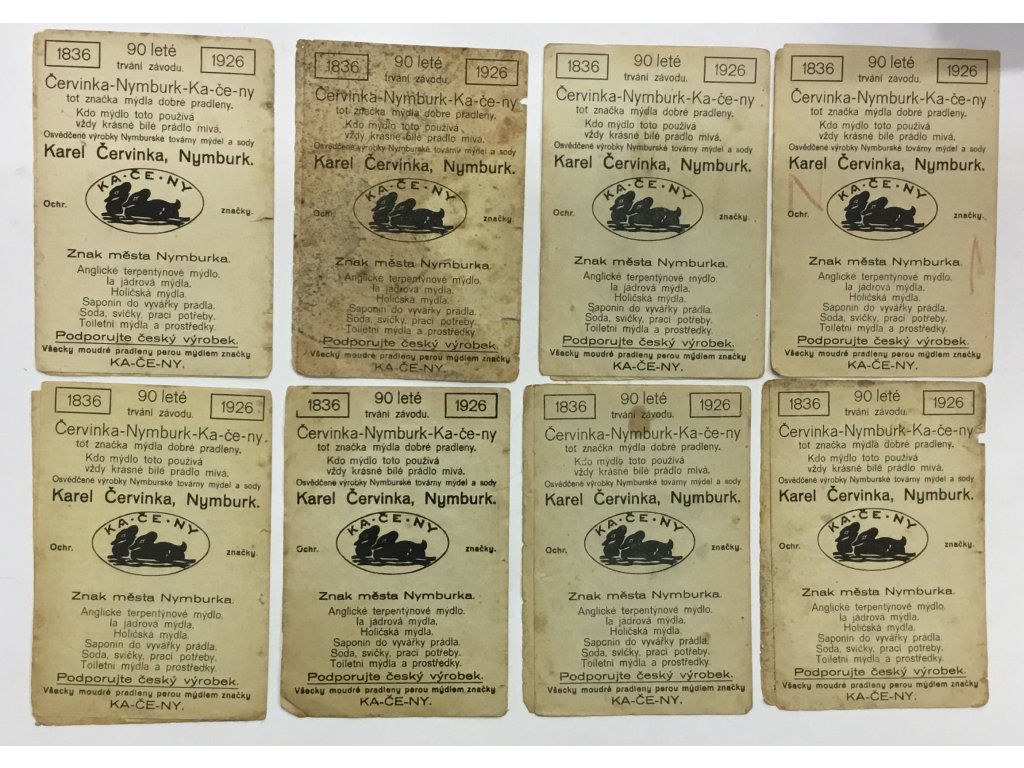 1836 90 leté 1926
trvání závodu.
Červinka-Nymburk-Ka-če-ny
tot značka mýdla dobré pradleny.
Kdo mýdlo toto používá
vždy krásné bílé prádlo mívá.
Osvědčené výrobky Nymburské továrny mýdel a sody
Karel Červinka, Nymburk.
KA·ČE·NY
Ochr. značky.
Znak města Nymburka.
Anglické terpentýnové mýdlo.
Ia jádrová mýdla.
Holičská mýdla.
Saponin do vyvářky prádla.
Soda, svíčky, prací potřeby.
Toiletní mýdla a prostředky.
Podporujte český výrobek.
Všecky moudré pradleny perou mýdlem značky
KA-ČE-NY.
1836 90 leté 1926
trvání závodu.
Červinka-Nymburk-Ka-če-ny
tot značka mýdla dobré pradleny.
Kdo mýdlo toto používá
vždy krásné bílé prádlo mívá.
Osvědčené výrobky Nymburské továrny mýdel a sody
Karel Červinka, Nymburk.
KA·ČE·NY
Ochr. značky.
Znak města Nymburka.
Anglické terpentýnové mýdlo.
Ia jádrová mýdla.
Holičská mýdla.
Saponin do vyvářky prádla.
Soda, svíčky, prací potřeby.
Toiletní mýdla a prostředky.
Podporujte český výrobek.
Všecky moudré pradleny perou mýdlem značky
KA-ČE-NY.
1836 90 leté 1926
trvání závodu.
Červinka-Nymburk-Ka-če-ny
tot značka mýdla dobré pradleny.
Kdo mýdlo toto používá
vždy krásné bílé prádlo mívá.
Osvědčené výrobky Nymburské továrny mýdel a sody
Karel Červinka, Nymburk.
KA·ČE·NY
Ochr. značky.
Znak města Nymburka.
Anglické terpentýnové mýdlo.
Ia jádrová mýdla.
Holičská mýdla.
Saponin do vyvářky prádla.
Soda, svíčky, prací potřeby.
Toiletní mýdla a prostředky.
Podporujte český výrobek.
Všecky moudré pradleny perou mýdlem značky
KA-ČE-NY.
1836 90 leté 1926
trvání závodu.
Červinka-Nymburk-Ka-če-ny
tot značka mýdla dobré pradleny.
Kdo mýdlo toto používá
vždy krásné bílé prádlo mívá.
Osvědčené výrobky Nymburské továrny mýdel a sody
Karel Červinka, Nymburk.
KA·ČE·NY
Ochr. značky.
Znak města Nymburka.
Anglické terpentýnové mýdlo.
Ia jádrová mýdla.
Holičská mýdla.
Saponin do vyvářky prádla.
Soda, svíčky, prací potřeby.
Toiletní mýdla a prostředky.
Podporujte český výrobek.
Všecky moudré pradleny perou mýdlem značky
KA-ČE-NY.
1836 90 leté 1926
trvání závodu.
Červinka-Nymburk-Ka-če-ny
tot značka mýdla dobré pradleny.
Kdo mýdlo toto používá
vždy krásné bílé prádlo mívá.
Osvědčené výrobky Nymburské továrny mýdel a sody
Karel Červinka, Nymburk.
KA·ČE·NY
Ochr. značky.
Znak města Nymburka.
Anglické terpentýnové mýdlo.
Ia jádrová mýdla.
Holičská mýdla.
Saponin do vyvářky prádla.
Soda, svíčky, prací potřeby.
Toiletní mýdla a prostředky.
Podporujte český výrobek.
Všecky moudré pradleny perou mýdlem značky
KA-ČE-NY.
1836 90 leté 1926
trvání závodu.
Červinka-Nymburk-Ka-če-ny
tot značka mýdla dobré pradleny.
Kdo mýdlo toto používá
vždy krásné bílé prádlo mívá.
Osvědčené výrobky Nymburské továrny mýdel a sody
Karel Červinka, Nymburk.
KA·ČE·NY
Ochr. značky.
Znak města Nymburka.
Anglické terpentýnové mýdlo.
Ia jádrová mýdla.
Holičská mýdla.
Saponin do vyvářky prádla.
Soda, svíčky, prací potřeby.
Toiletní mýdla a prostředky.
Podporujte český výrobek.
Všecky moudré pradleny perou mýdlem značky
KA-ČE-NY.
1836 90 leté 1926
trvání závodu.
Červinka-Nymburk-Ka-če-ny
tot značka mýdla dobré pradleny.
Kdo mýdlo toto používá
vždy krásné bílé prádlo mívá.
Osvědčené výrobky Nymburské továrny mýdel a sody
Karel Červinka, Nymburk.
KA·ČE·NY
Ochr. značky.
Znak města Nymburka.
Anglické terpentýnové mýdlo.
Ia jádrová mýdla.
Holičská mýdla.
Saponin do vyvářky prádla.
Soda, svíčky, prací potřeby.
Toiletní mýdla a prostředky.
Podporujte český výrobek.
Všecky moudré pradleny perou mýdlem značky
KA-ČE-NY.
1836 90 leté 1926
trvání závodu.
Červinka-Nymburk-Ka-če-ny
tot značka mýdla dobré pradleny.
Kdo mýdlo toto používá
vždy krásné bílé prádlo mívá.
Osvědčené výrobky Nymburské továrny mýdel a sody
Karel Červinka, Nymburk.
KA·ČE·NY
Ochr. značky.
Znak města Nymburka.
Anglické terpentýnové mýdlo.
Ia jádrová mýdla.
Holičská mýdla.
Saponin do vyvářky prádla.
Soda, svíčky, prací potřeby.
Toiletní mýdla a prostředky.
Podporujte český výrobek.
Všecky moudré pradleny perou mýdlem značky
KA-ČE-NY.